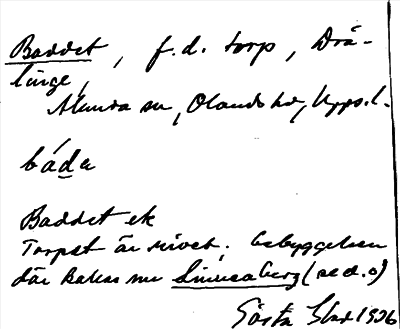 Baddet, f.d. torp, Drä-
linge,
Alunda sn, Olands hd, Upps. l.
båda
Baddet ek
Torpet är rivet; bebyggelsen
där kallas nu Linneaberg (se d.o)
Gösta 1936